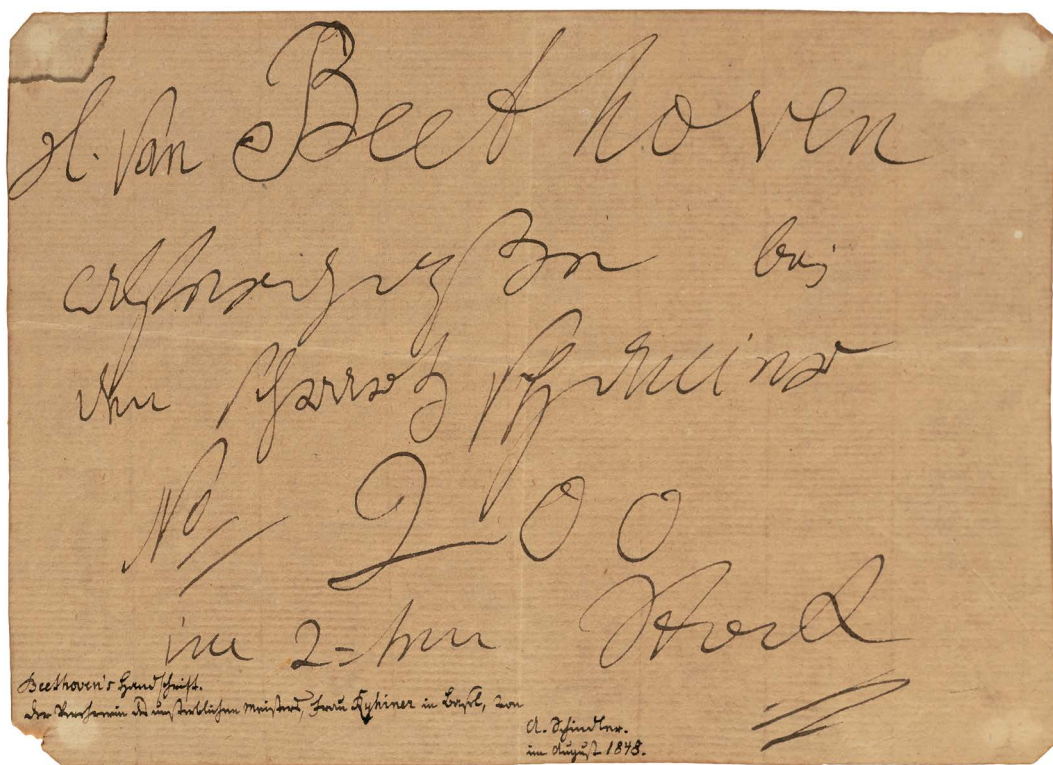 H. van Beethoven
bei
den schwarz spanier
No 200
im 2=ten Stock
Beethoven's Handschrift.
Der Verehrerin des unsterblichen Meisters, Frau Ryhiner in Basel, von
A. Schindler.
im August 1843.